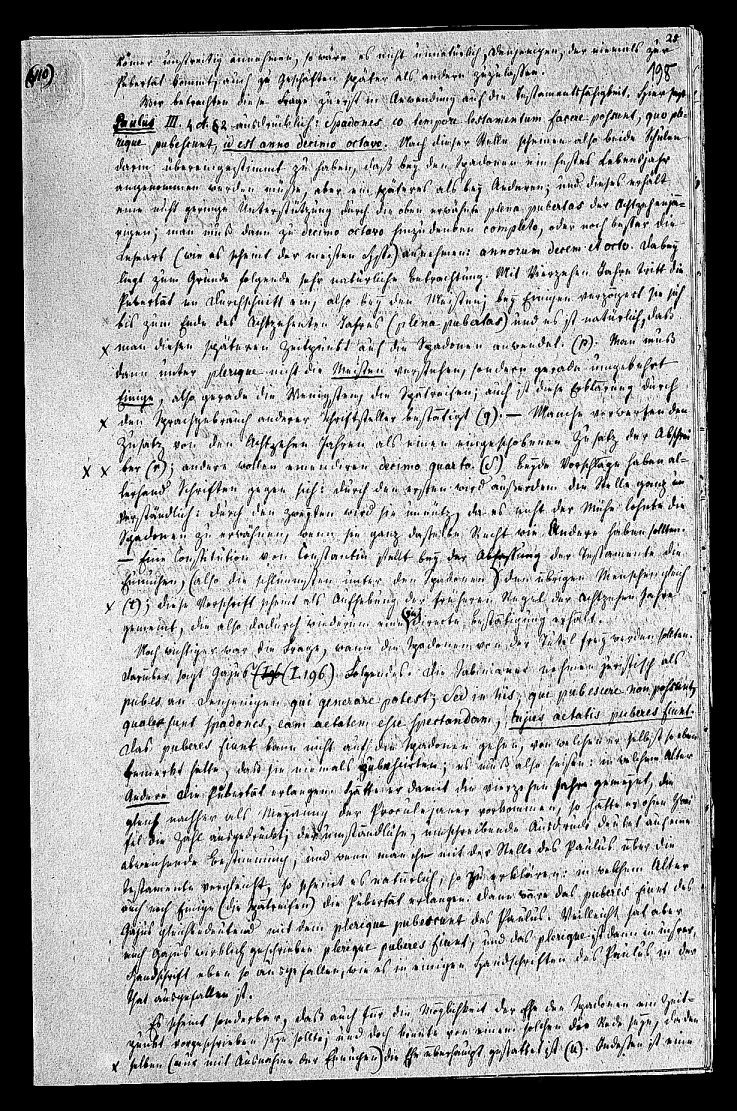 28
(110)
198
Römer unstreitig annehmen, so wäre es nicht unnatürlich, denjenigen, der niemals zur
Pubertät kommt, auch zu Geschäften später als andere zuzulassen.
Wir betrachten diese Frage zuerst in Anwendung auf die Testamentsfähigkeit. Hier sagt
Paulus III. 4. A. §2 ausdrücklich: Spadones eo tempore testamentum facere possunt, quo ple-
rique pubescunt, id est anno decimo octavo. Nach dieser Stelle scheinen also beide Schulen
darin übereingestimmt zu haben, daß bey den Spadonen ein festes Lebensjahr
angenommen werden müsse, aber ein späteres als bey Anderen; und dieses erhält
eine nicht geringe Unterstützung durch die oben erwähnte plena pubertas der Achtzehenjäh-
rigen; man muß dann zu decimo octavo hinzudenken completo, oder noch besser die
Leseart (wie es scheint der meisten Hss.) annehmen: annorum decem et octo. Dabey
liegt zum Grunde folgende sehr natürliche Betrachtung. Mit Vierzehen Jahren tritt die
Pubertät im Durchschnitt ein, also bey den Meisten; bey Einigen verzögert sie sich
bis zum Ende des Achtzehenten Jahres (plena pubertas) und es ist natürlich, daß
x man diesen späteren Zeitpunkt auf die Spadonen anwendet. (p). Man muß
dann unter plerique nicht die Meisten verstehen, sondern gerade umgekehrt
Einige, also gerade die Wenigsten, die Spätreifen; auch ist diese Erklärung durch
x den Sprachgebrauch anderer Schriftsteller bestätigt (q). — Manche verwerfen den
Zusatz von den Achtzehen Jahren als einen eingeschobenen Zusatz der Abschrei-
x x ber (r); andere wollen emendiren decimo quarto (s). Beyde Vorschläge haben al-
lerhand Schriften gegen sich: durch den ersten wird außerdem die Stelle ganz un-
verständlich: durch den zweyten wird sie unnütz, da es nicht der Mühe lohnte die
Spadonen zu erwähnen, wenn sie ganz dasselbe Recht wie Andere haben sollten.
— Eine Constitution von Constantin stellt bey der Abfassung der Testamente die
Eunuchen, (also die schlimmsten unter den Spadonen) den übrigen Menschen gleich
x (t); diese Vorschrift scheint als Aufhebung der früheren Regel der Achtzehen Jahre
gemeint, die also dadurch wiederum eine indirecte Bestätigung erhält.
Noch wichtiger war die Frage, wann die Spadonen von der Tutel frey werden sollten.
Darüber sagt Gajus (I. 196) Folgendes. Die Sabinianer nehmen juristisch als
pubes an denjenigen qui generare potest; sed in his, qui pubescere non possunt,
quales sunt spadones, eam aetatem esse spectandam, cujus aetatis puberes fiunt.
Das puberes fiunt kann nicht auf die Spadonen gehen, von welchen er selbst so eben
bemerkt hatte, daß sie niemals pubescirten; es muß also heißen: in welchem Alter
Andere die Pubertät erlangen. Hätte er damit die vierzehen Jahre gemeynt, die
gleich nachher als Meynung der Proculejaner vorkommen, so hätte er ohne Zwei-
fel die Zahl ausgedrückt; der umständliche, umschreibende Ausdruck deutet auf eine
abweichende Bestimmung, und wenn man ihn mit der Stelle des Paulus über die
Testamente vergleicht, so scheint es natürlich, so zu erklären: in welchem Alter
auch noch Einige (die Spätreifen) die Pubertät erlangen. Dann wäre das puberes fiunt des
Gajus gleichbedeutend mit dem plerique pubescunt des Paulus. Vielleicht hat aber
auch Gajus wirklich geschrieben plerique puberes fiunt, und das plerique ist dann in unsrer
Handschrift eben so ausgefallen, wie es in einigen Handschriften des Paulus in der
That ausgefallen ist.
Es scheint sonderbar, daß auch für die Möglichkeit der Ehe den Spadonen ein Zeit-
punkt vorgeschrieben seyn sollte; und doch könnte von einem solchen die Rede seyn, da den-
x selben (nur mit Ausnahme der Eunuchen) die Ehe überhaupt gestattet ist (u). Indessen ist eine